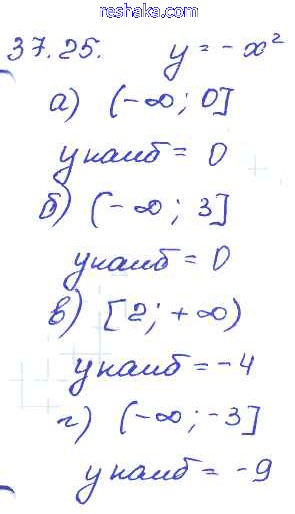 reshaka.com
37.25. y = -x²
а) (-∞; 0]
y наиб = 0
б) (-∞; 3]
y наиб = 0
в) [2; +∞)
y наиб = -4
г) (-∞; -3]
y наиб = -9